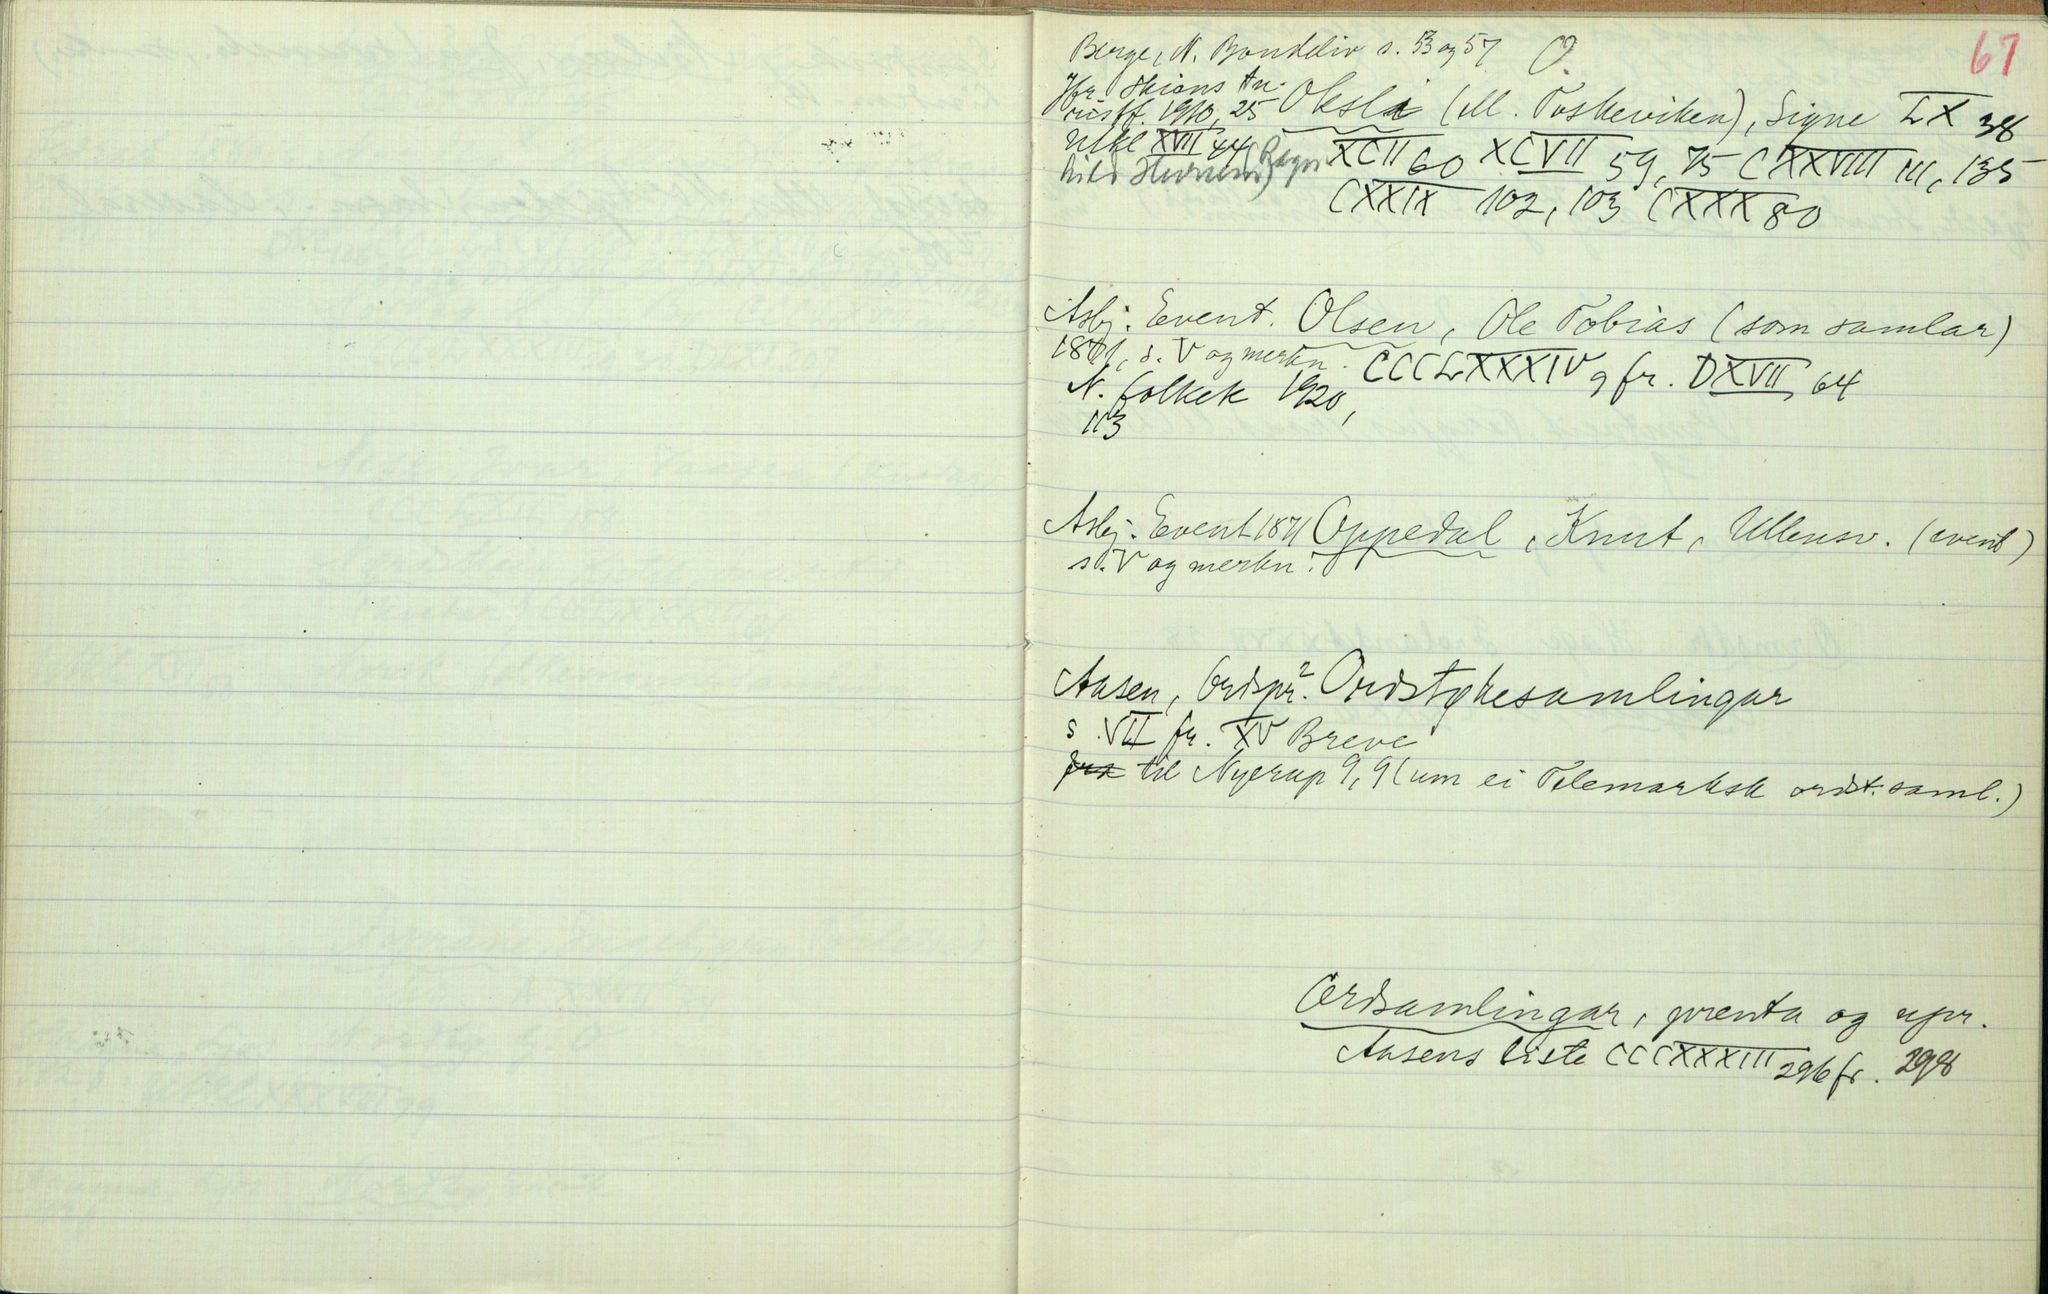 67
Berge, N. Bondeliv s. 53 og 57 O.
1910, 25 Oksli (ell. Toskeviken), Signe LX 38
XVII 44 XCII 60 XCVII 59, 75 CXXVIIII 111, 135
CXXIX 102, 103 CXXX 80
Asbj. Event. Olsen, Ole Tobias (som samlar)
1871, s. V og merkn. CCCLXXXIV 9 fr. DXVII 64
N. folkek 1920,
113
Asbj. Event 1871 Oppedal, Knut, Ullensv. (event)
s. V og merkn.
Aasen, Ordspr.² Ordstøkesamlingar
s. VII fr. XV Breve
fra til Nyerup 9, 9 (um ei Telemarksk ordt. saml.)
Ordsamlingar, prenta og upr.
Aasens liste CCCXXXIII 296 fr. 298